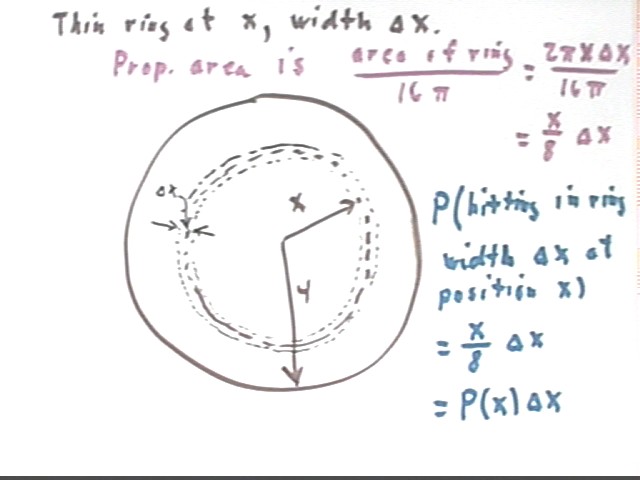 Thin ring at x, width Δx.
Prop. area is area of ring / 16π = 2πxΔx / 16π
= x/8 Δx
Δx
x
4
P(hitting in ring
width Δx at
position x)
= x/8 Δx
= P(x)Δx